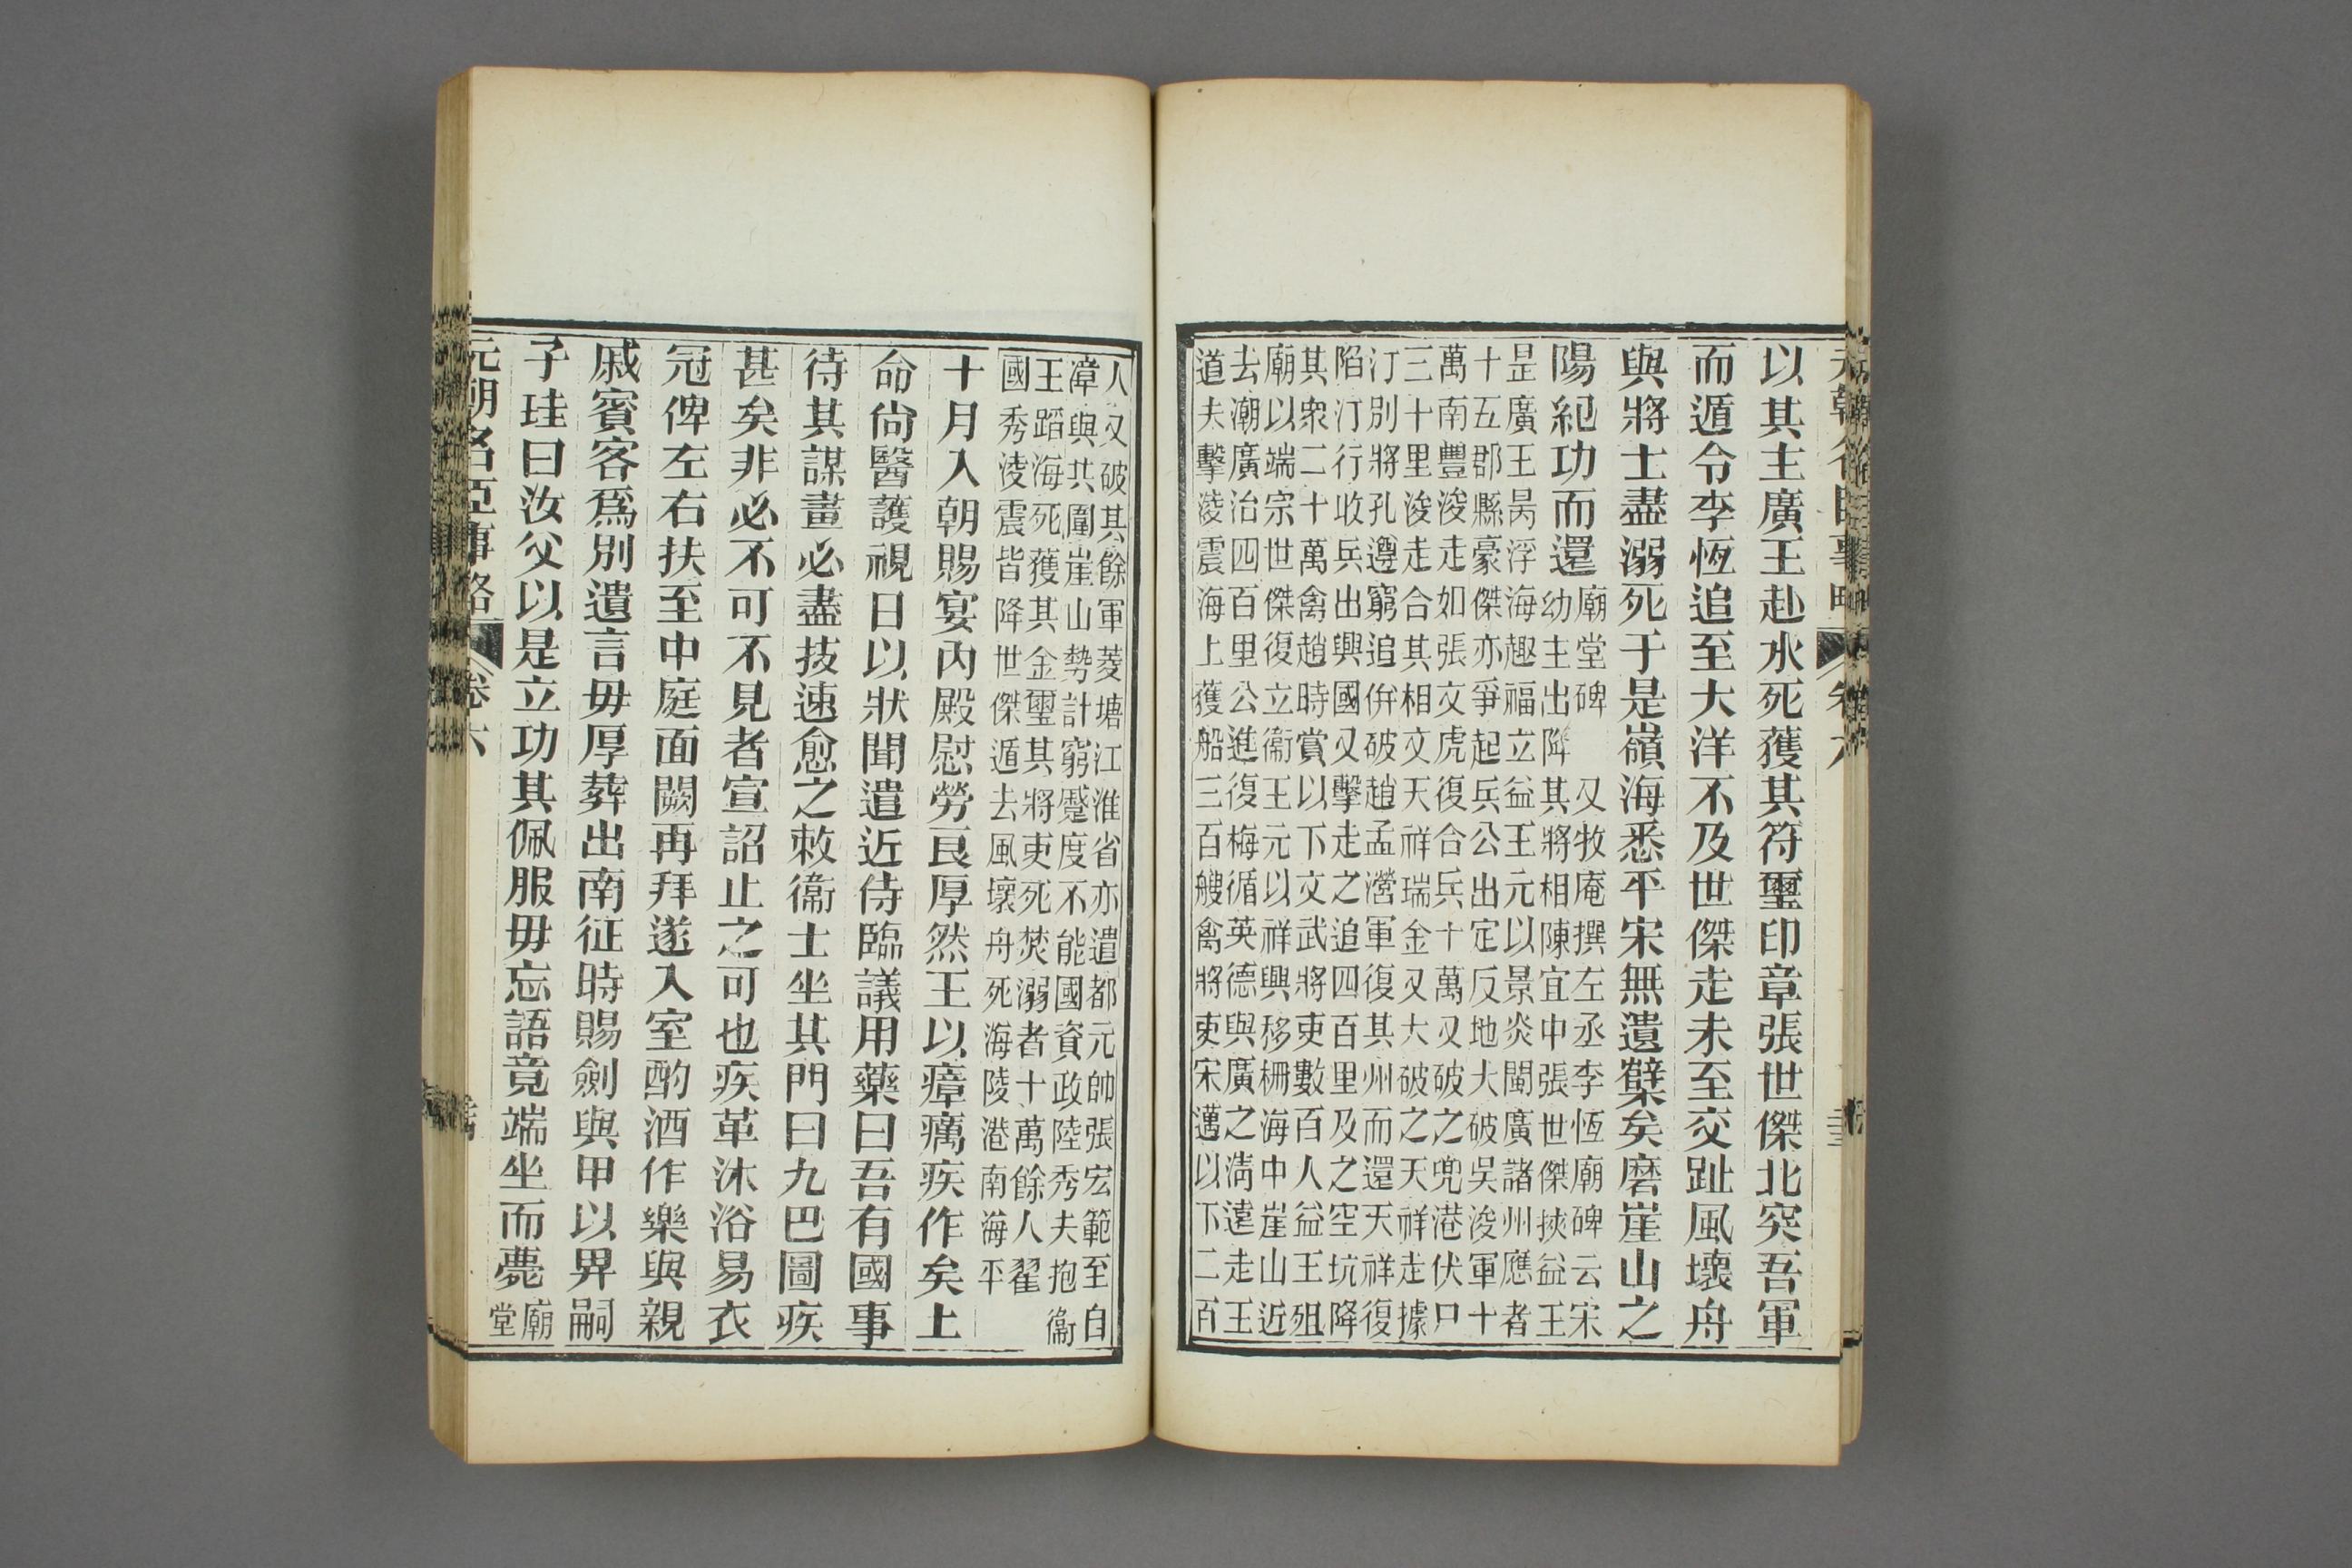 元朝名臣事略 卷六
以其主廣王赴水死獲其符璽印章張世傑北突吾軍
而遁令李恆追至大洋不及世傑走未至交趾風壞舟
與將士盡溺死于是嶺海悉平宋無遺糵矣磨崖山之
陽紀功而還
廟堂碑 又牧庵撰左丞李恆廟碑云宋
幼主出降其將相陳宜中張世傑挾益王
昰廣王昺浮海趣福立益王元以景炎閩廣諸州應者
十五郡縣豪傑亦爭起兵公出定反地大破吳浚軍十
萬南豐浚走如張文虎復合兵十萬又破之兜港伏尸
三十里浚走合其相文天祥瑞金又大破之天祥走據
汀別將孔遵窮追併破趙孟瀯軍復其州而還天祥復
陷汀行收兵出興國又擊走之追四百里及之空坑降
其衆二十萬禽趙時賞以下文武將吏數百人益王殂
廟以端宗世傑復立衞王元以祥興移柵海中崖山近
去潮廣治四百里公進復梅循英德與廣之淸遠走王
道夫擊淩震海上獲船三百艘禽將吏宋邁以下二百
人又破其餘軍菱塘江淮省亦遣都元帥張宏範至自
漳與共圍崖山勢計窮蹙度不能國資政陸秀夫抱衞
王蹈海死獲其金璽其將吏死焚溺者十萬餘人翟
國秀淩震皆降世傑遁去風壞舟死海陵港南海平
十月入朝賜宴內殿慰勞良厚然王以瘴癘疾作矣上
命尙醫護視日以狀聞遣近侍臨議用藥曰吾有國事
待其謀畫必盡技速愈之敕衞士坐其門曰九巴圖疾
甚矣非必不可不見者宣詔止之可也疾革沐浴易衣
冠俾左右扶至中庭面闕再拜遂入室酌酒作樂與親
戚賓客爲別遺言毋厚葬出南征時賜劍與甲以畀嗣
子珪曰汝父以是立功其佩服毋忘語竟端坐而薨
廟
堂
元朝名臣事略 卷六